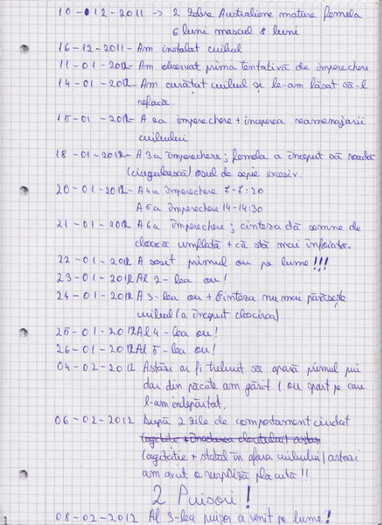 10-12-2011 -> 2 Zebre Australiene mature femela
6 luni mascul 8 luni
16-12-2011- Am instalat cuibul
11-01-2012- Am observat prima tentativă de împerechere
14-01-2012- Am curățat cuibul și le-am lăsat să-l
refacă.
15-01-2012- A 2a împerechere + începerea reamenajării
cuibului
18-01-2012- A 3a împerechere; femela a început să roadă
(ciugulească) osul de sepie excesiv.
20-01-2012- A 4a împerechere 7-7:20
A 5a împerechere 14-14:30
21-01-2012 A 6a împerechere; cinteza dă semne de
cloacă umflată + că stă mai înfoiată.
22-01-2012 A sosit primul ou pe lume!!!
23-01-2012 Al 2-lea ou!
24-01-2012 A 3-lea ou + cinteza nu mai părăsește
cuibul (a început clocirea)
25-01-2012 Al 4-lea ou!
26-01-2012 Al 5-lea ou!
04-02-2012 Astăzi ar fi trebuit să apară primul pui
dar din păcate am găsit 1 ou spart pe care
l-am îndepărtat.
06-02-2012 După 2 zile de comportament ciudat
(agitație + statul în afara cuibului) astăzi
am avut o surpriză plăcută!!
2 Puișori!
08-02-2012 Al 3-lea puișor a venit pe lume!